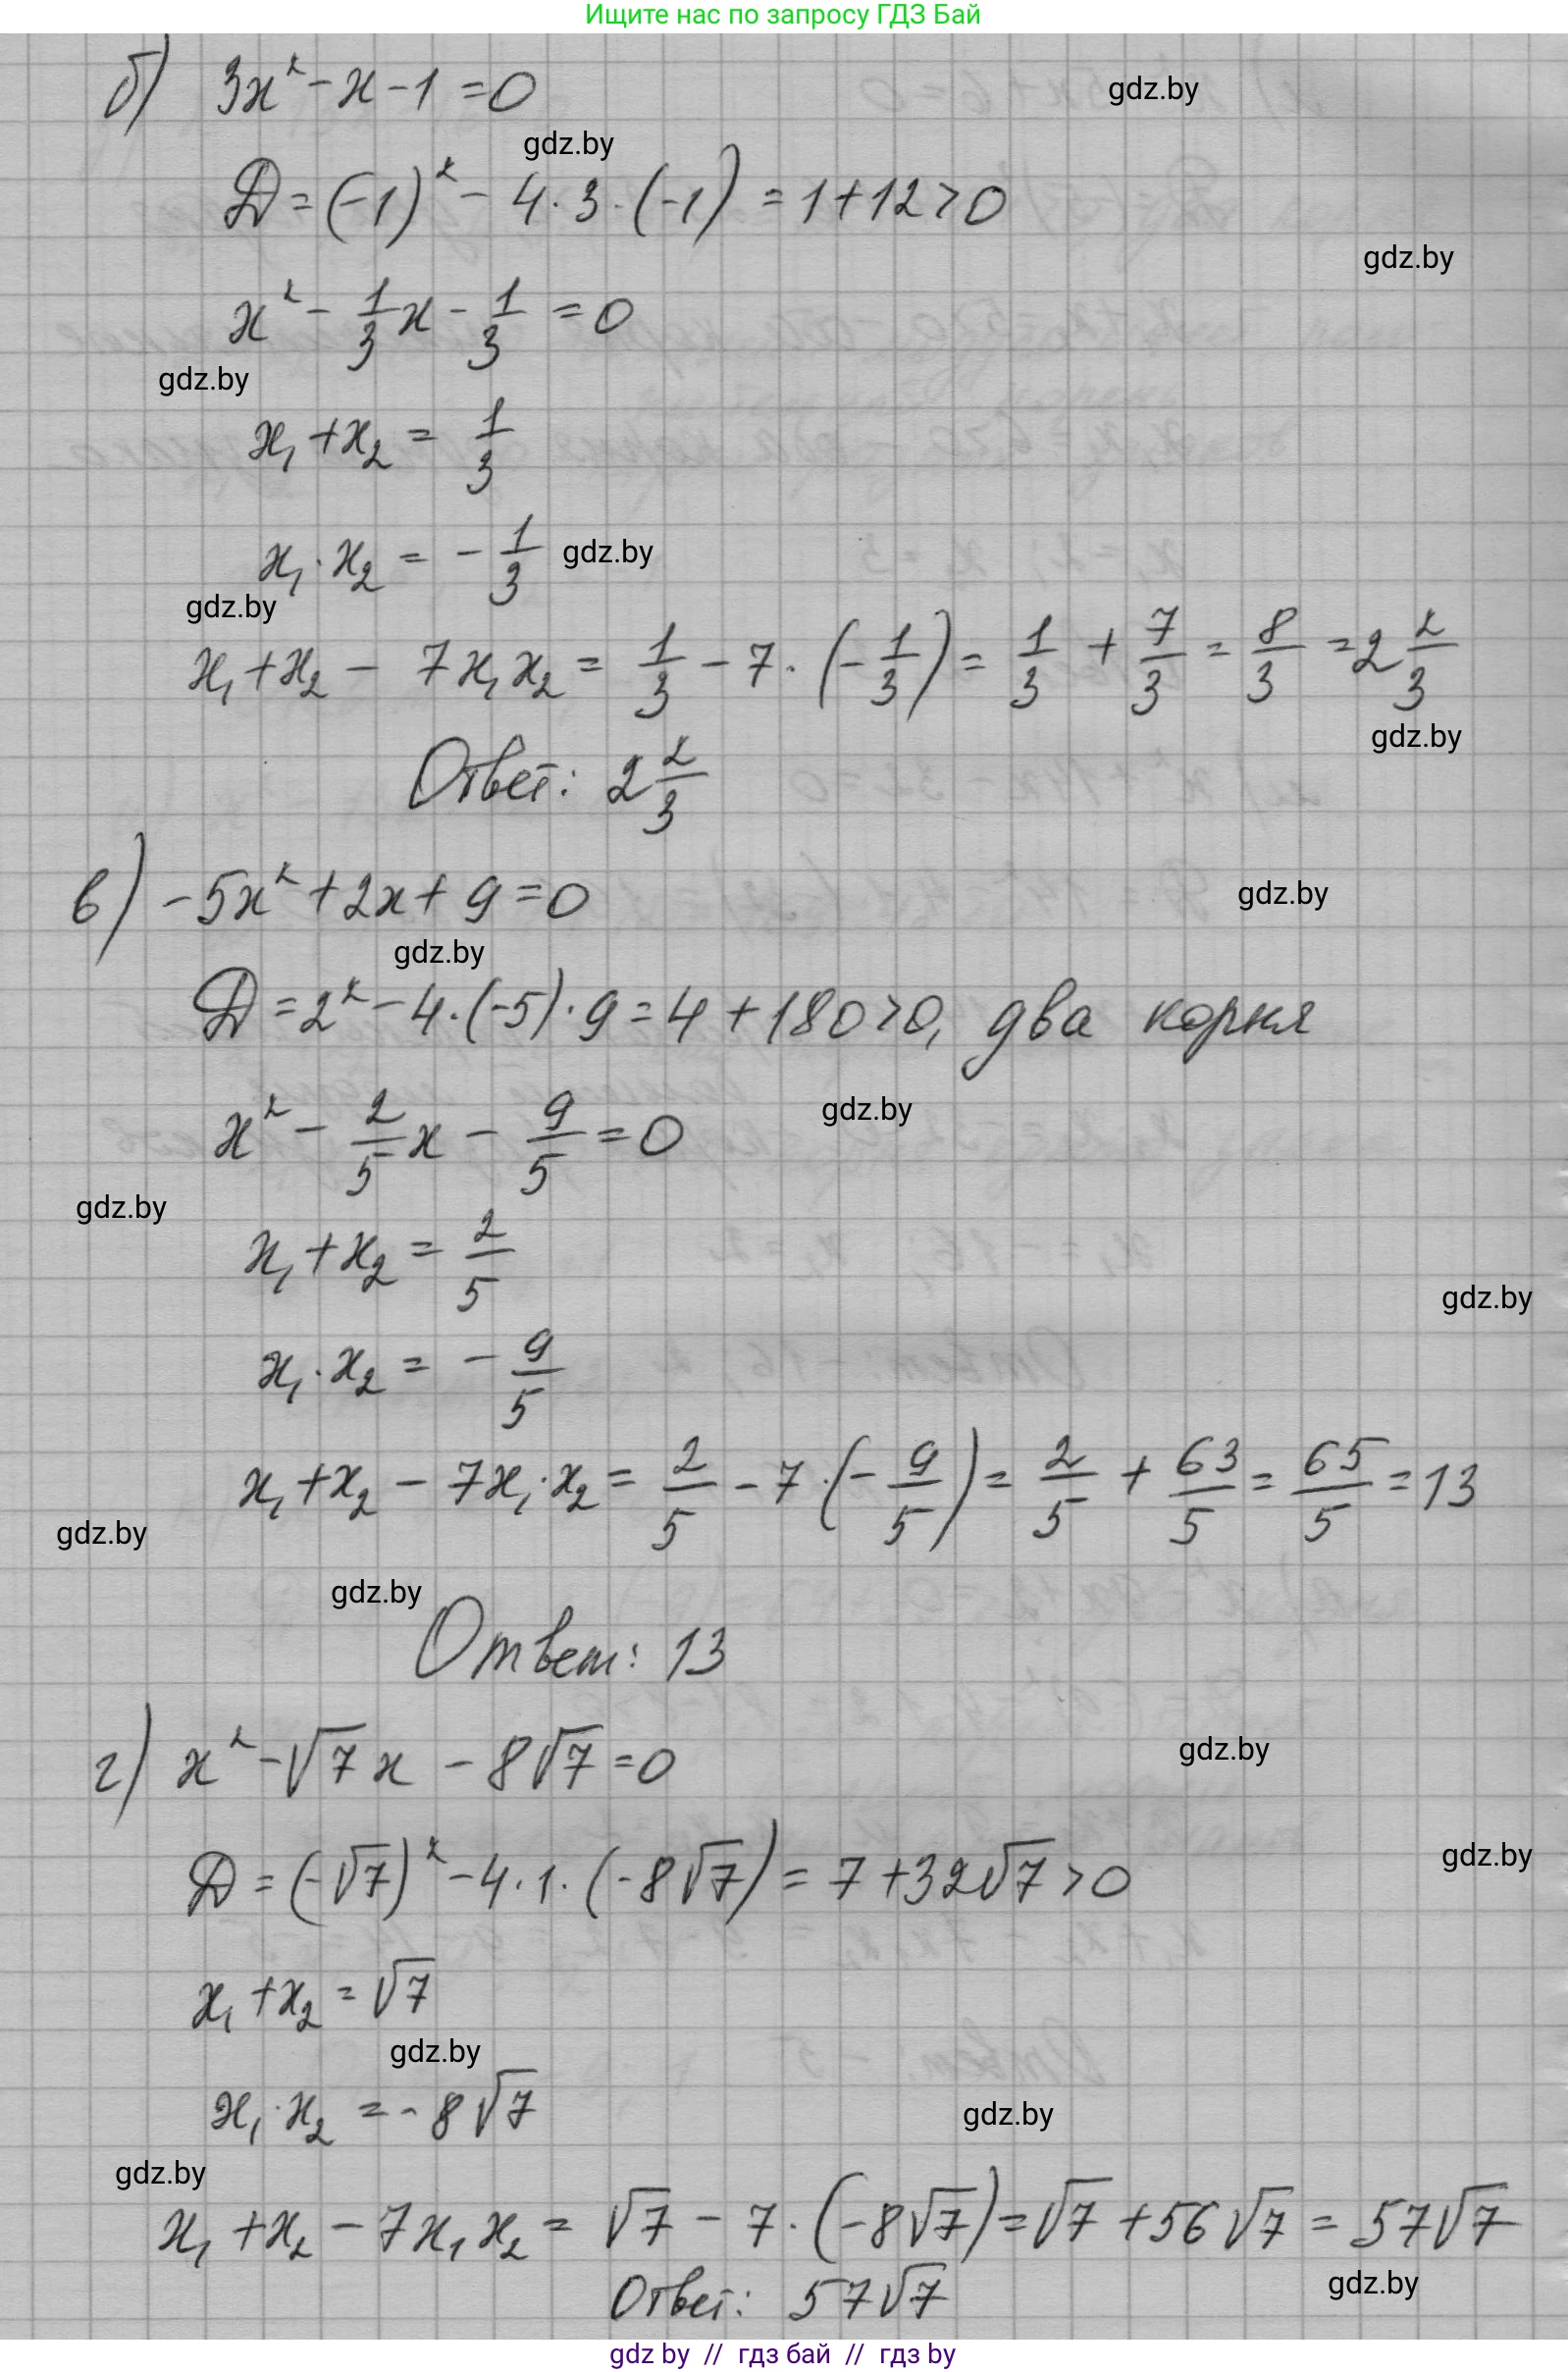 Ищите нас по запросу ГДЗ Бай
б) 3x² - x - 1 = 0
gdz.by
gdz.by
D = (-1)² - 4·3·(-1) = 1 + 12 > 0
gdz.by
x² - 1/3 x - 1/3 = 0
gdz.by
x₁ + x₂ = 1/3
x₁·x₂ = - 1/3
gdz.by
gdz.by
x₁ + x₂ - 7x₁x₂ = 1/3 - 7·(-1/3) = 1/3 + 7/3 = 8/3 = 2 2/3
gdz.by
Ответ: 2 2/3
в) -5x² + 2x + 9 = 0
gdz.by
gdz.by
D = 2² - 4·(-5)·9 = 4 + 180 > 0, два корня
gdz.by
x² - 2/5 x - 9/5 = 0
gdz.by
x₁ + x₂ = 2/5
gdz.by
x₁·x₂ = - 9/5
x₁ + x₂ - 7x₁·x₂ = 2/5 - 7·(-9/5) = 2/5 + 63/5 = 65/5 = 13
gdz.by
gdz.by
Ответ: 13
г) x² - √7 x - 8√7 = 0
gdz.by
gdz.by
D = (-√7)² - 4·1·(-8√7) = 7 + 32√7 > 0
x₁ + x₂ = √7
gdz.by
x₁·x₂ = -8√7
gdz.by
gdz.by
x₁ + x₂ - 7x₁x₂ = √7 - 7·(-8√7) = √7 + 56√7 = 57√7
gdz.by
Ответ: 57√7
gdz by // гдз бай // гдз by